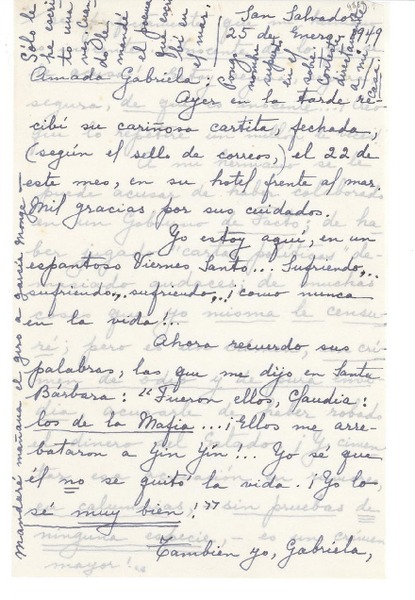 San Salvador,
25 de Enero, 1949
Amada Gabriela:
Ayer en la tarde re-
cibí su cariñosa cartita, fechada,
(según el sello de correos,) el 22 de
este mes, en su hotel frente al mar.
Mil gracias por sus cuidados.
Yo estoy aquí, en un
espantoso Viernes Santo... Sufriendo,..
sufriendo,.. sufriendo,.. ¡como nunca
en la vida!...
Ahora recuerdo sus
palabras, las que me dijo en Santa
Bárbara: "Fueron ellos, Claudia:
los de la Mafia...¡Ellos me arre-
bataron a Yin Yin!... Yo sé que
él no se quitó la vida. ¡Yo lo
sé muy bien!"
Tambien yo, Gabriela,
Sólo le
he escri-
to una
vez.
mandé
el
que escri-
bí en
el mar.
Ponga
nombre
supuesto
en el
sobre.
Conteste
directa
a mi
casa.
Mandaré mañana el giro a